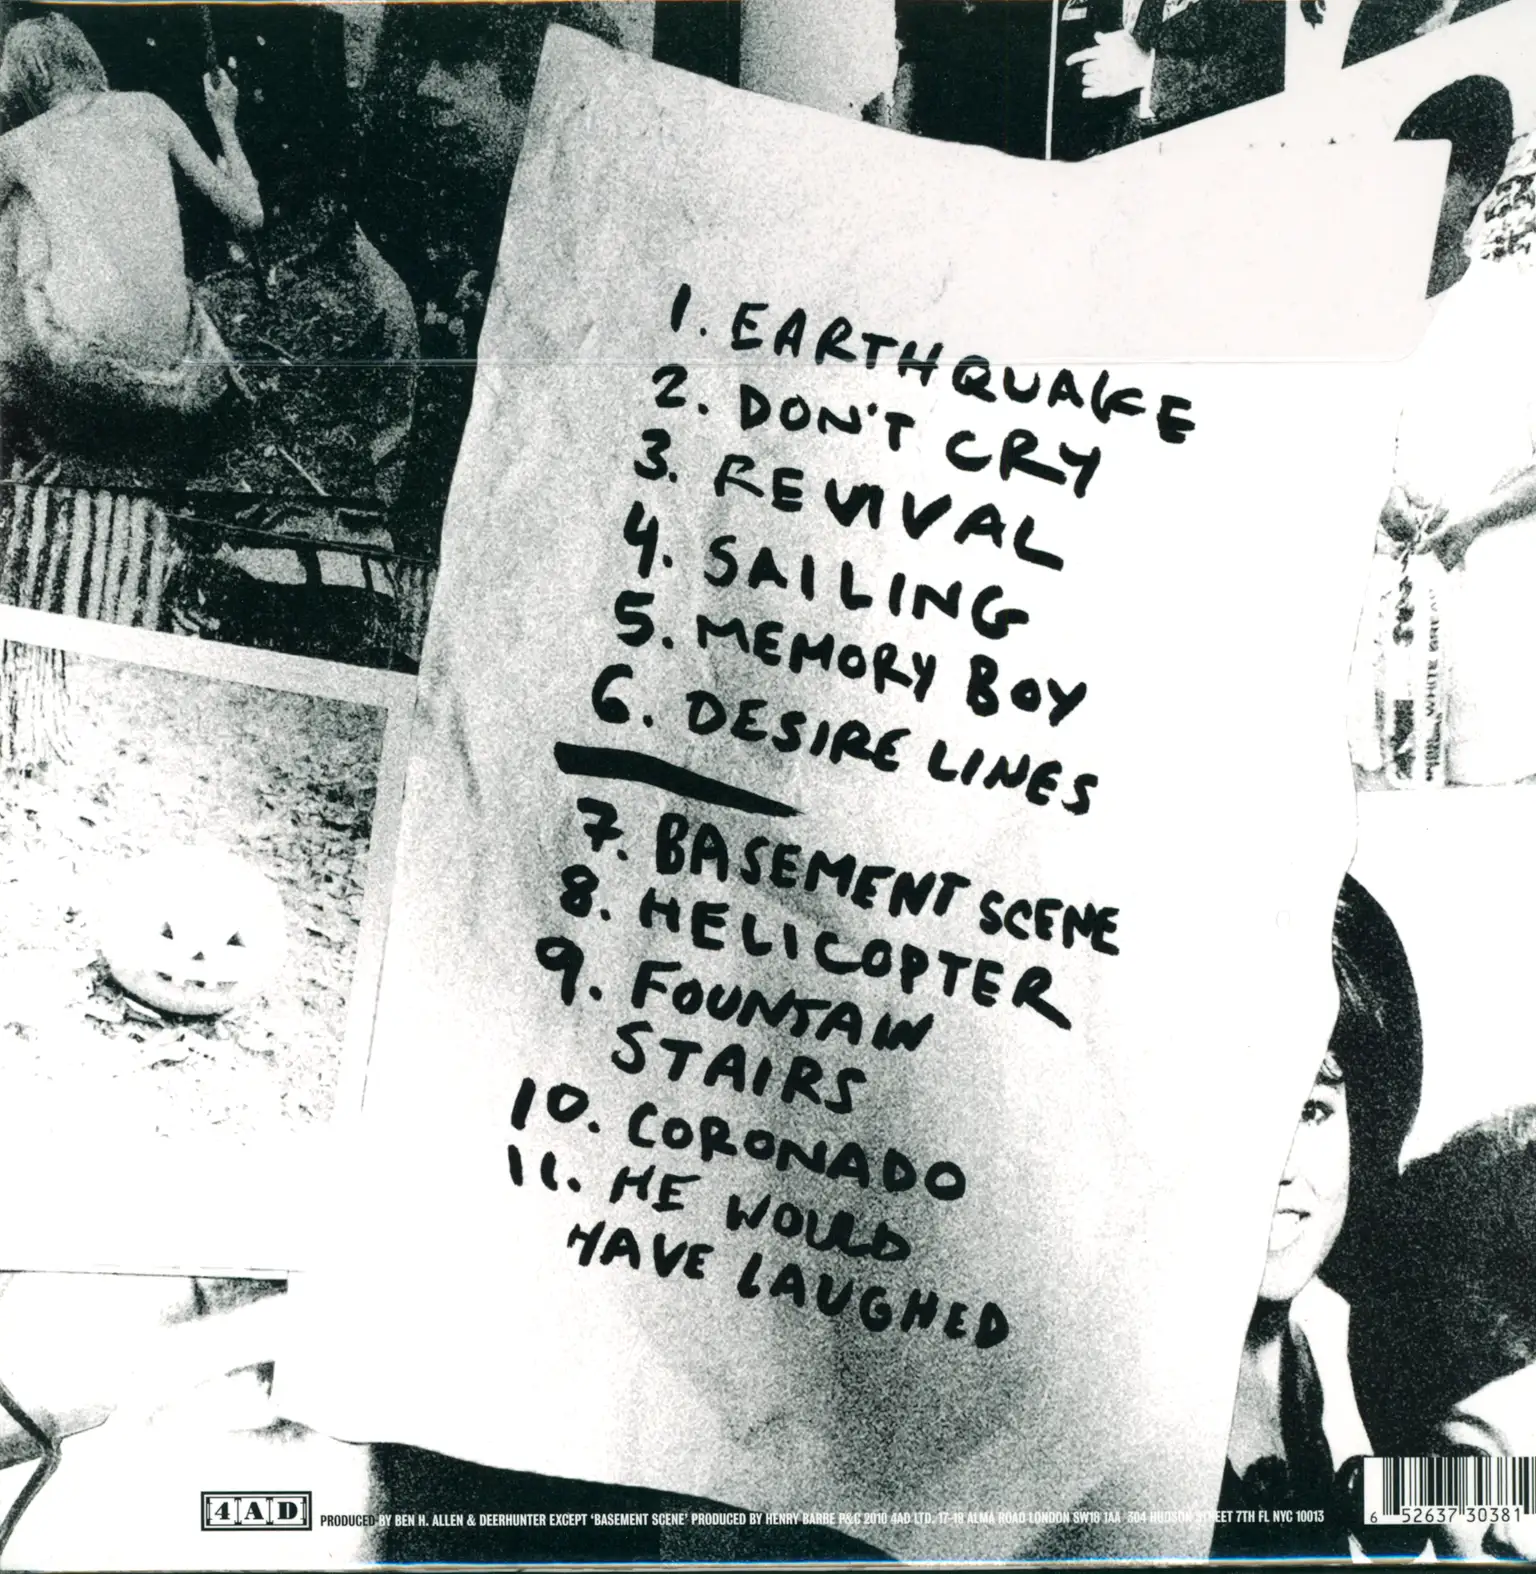 1. EARTHQUAKE
2. DON'T CRY
3. REVIVAL
4. SAILING
5. MEMORY BOY
6. DESIRE LINES
7. BASEMENT SCENE
8. HELICOPTER
9. FOUNTAIN
STAIRS
10. CORONADO
11. HE WOULD
HAVE LAUGHED
WHITE BREAD
4AD
PRODUCED BY BEN H. ALLEN & DEERHUNTER EXCEPT 'BASEMENT SCENE' PRODUCED BY HENRY BARBE P&C 2010 4AD LTD. 17-19 ALMA ROAD LONDON SW18 1AA 304 HUDSON STREET 7TH FL NYC 10013
6 52637 30381